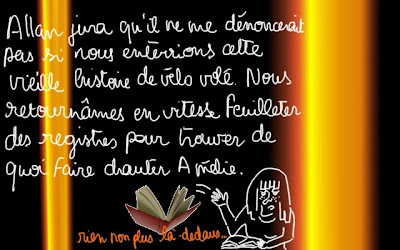 Allan jura qu'il ne me dénoncerait
pas si nous enterrions cette
vieille histoire de vélo volé. Nous
retournâmes en vitesse feuilleter
des registres pour trouver de
quoi faire chanter Amélie.
rien non plus là-dedans...